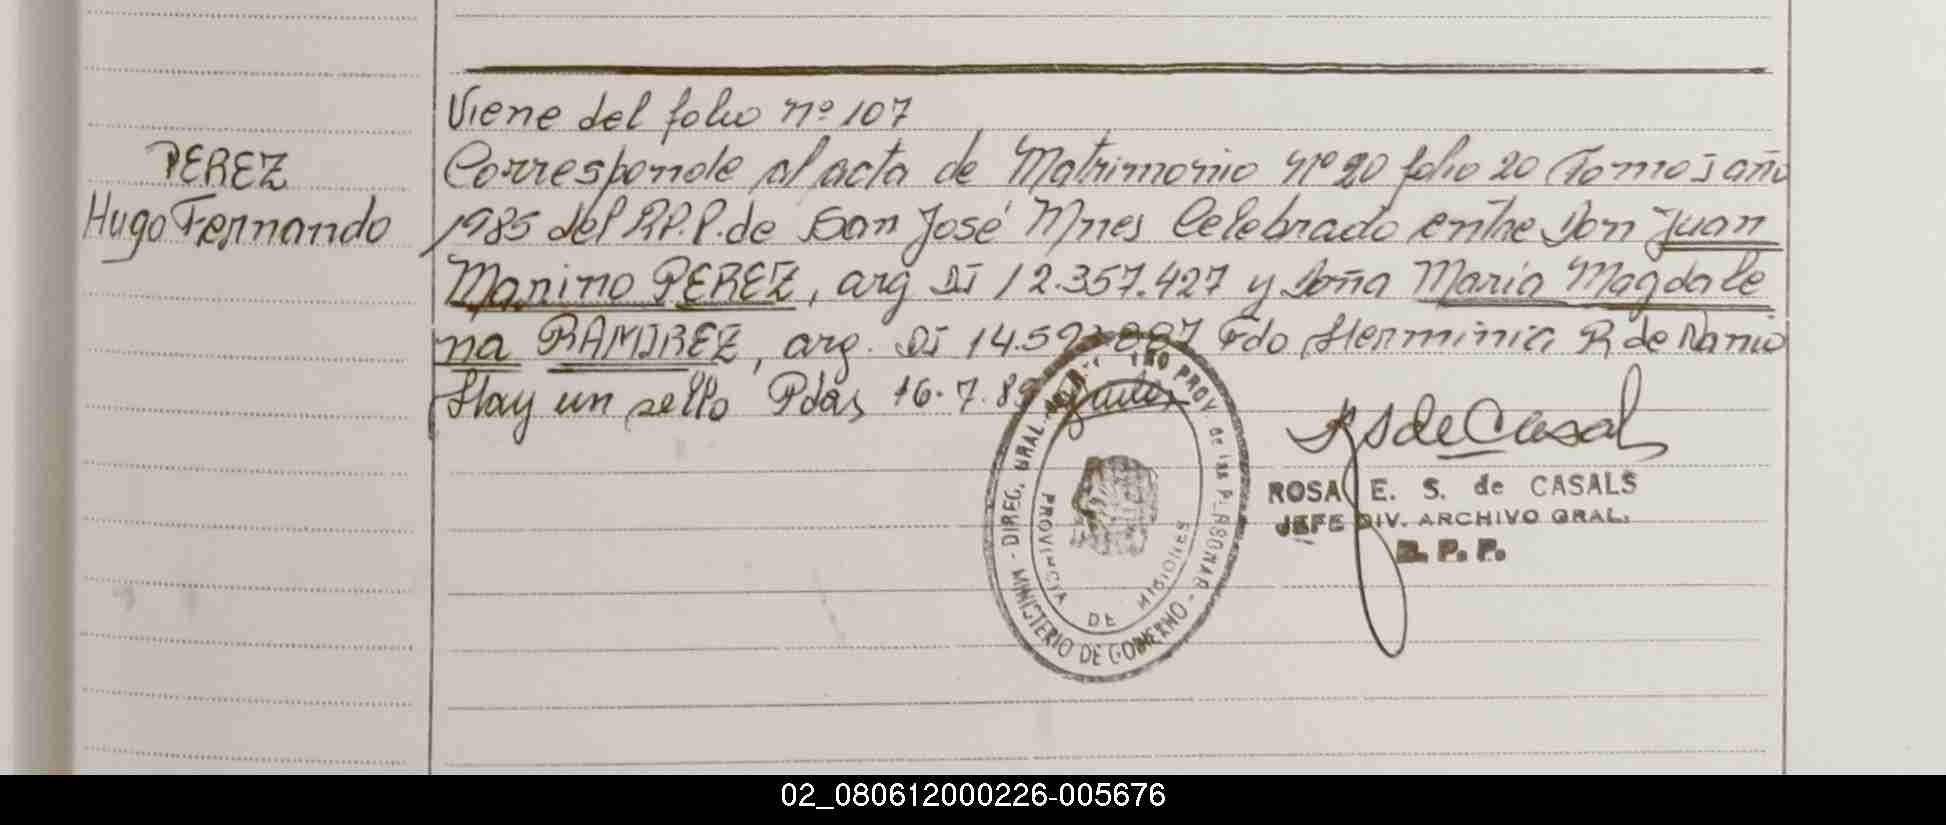 Viene del folio nº 107
PEREZ
Hugo Fernando
Corresponde al acta de Matrimonio Nº 20 folio 20 Tomo 1 año
1985 del R.P.P. de San José Mnes Celebrado entre Don Juan
Marino PEREZ, arg DI 12.357.427 y Doña Maria Magdale
na RAMIREZ, arg. DI 14.59 887 Fdo Herminia R de
Hay un sello Pdas 16.7.89
RSdeCasal
ROSA E. S. de CASALS
JEFE DIV. ARCHIVO GRAL.
R. P. P.
DIREC. GRAL. PROV. de las PERSONAS
MINISTERIO DE GOBIERNO
PROVINCIA DE MISIONES
02_080612000226-005676